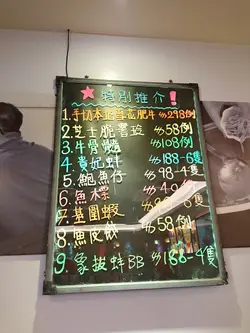 ★特別推介!
1.手切本地安格肥牛 $298例
2.芝士脆薯班 $58例
3.牛骨髓 $108例
4.貴妃蚌 $188-6隻
5.鮑魚仔 $98-4隻
6.魚標
7.基圍蝦 8隻
8.魚皮餃 $58例
9.象拔蚌BB $188-4隻